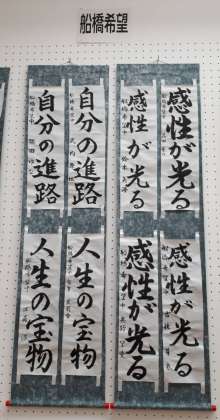 船橋希望
感性が光る
感性が光る
自分の進路
自分の進路
感性が光る
感性が光る
人生の宝物
人生の宝物